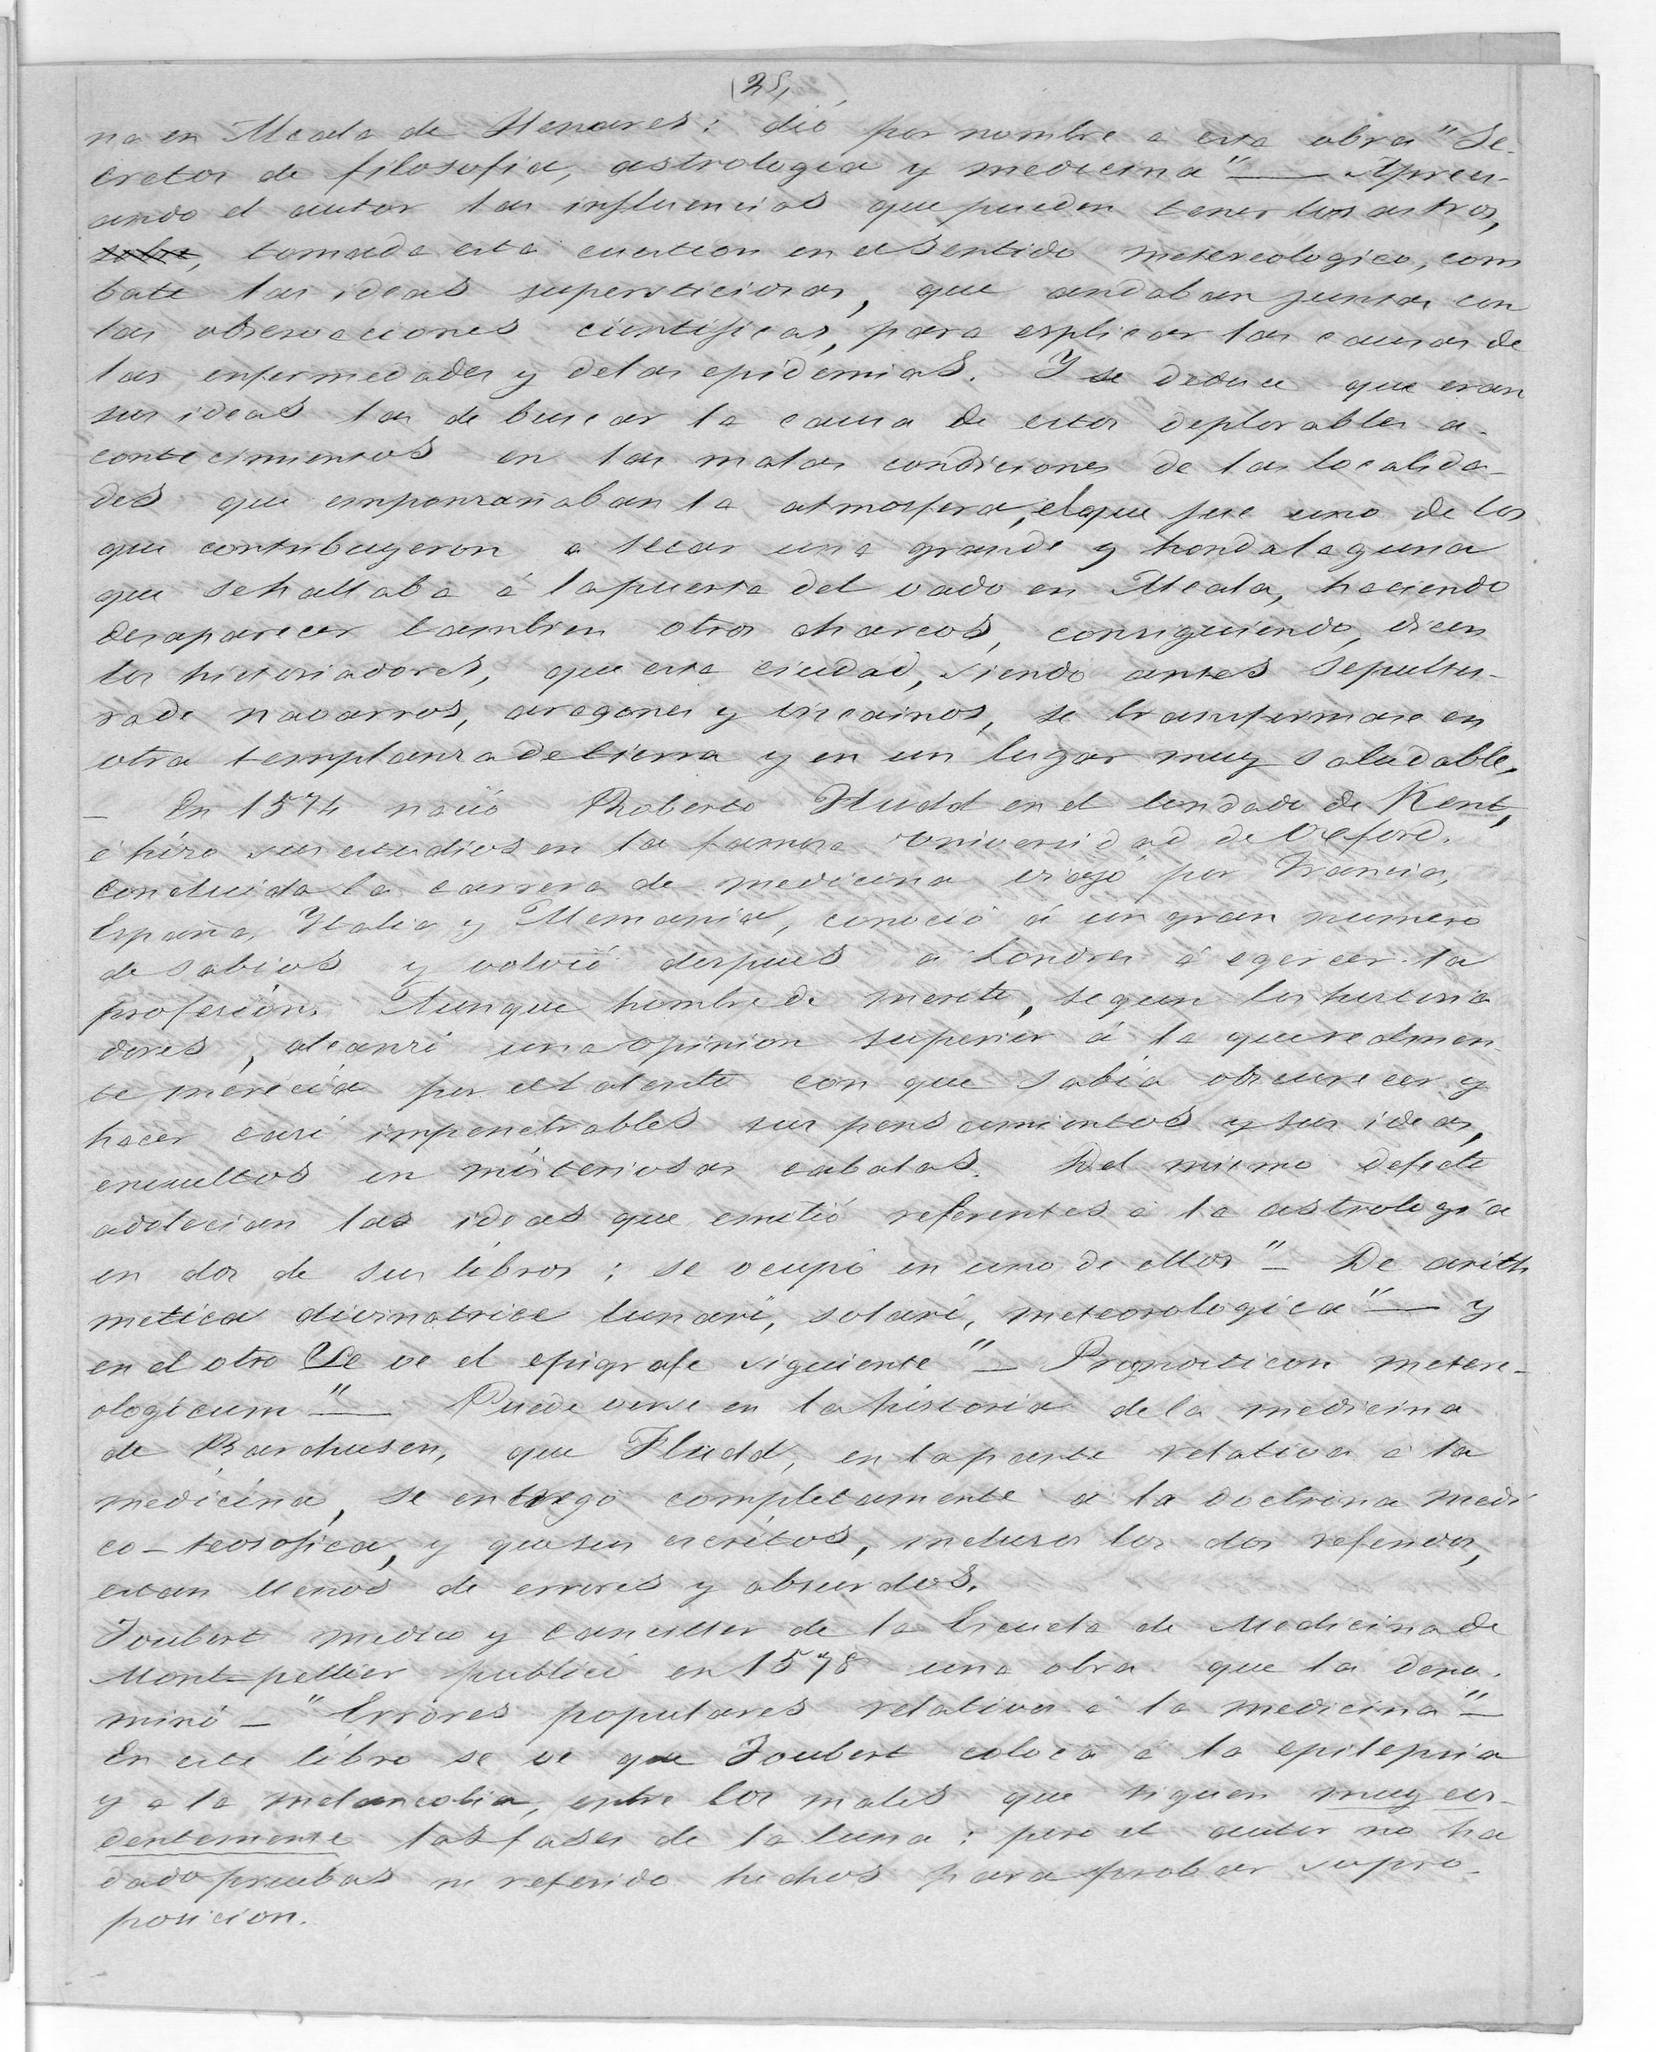 (25,
na en Alcala de Henares: dió por nombre a esta obra "Se-
cretos de filosofia, astrologia y medicina" — Apreci-
ando el autor las influencias que pueden tener los astros,
sobre, tomada esta cuestion en el sentido metereologico, com
bate las ideas supersticiosas, que andaban juntas con
las observaciones cientificas, para esplicar las causas de
las enfermedades y de las epidemias. Y se deduce que eran
sus ideas las de buscar la causa de estos deplorables a-
contecimientos en las malas condiciones de las localida-
des que emponzañaban la atmosfera, el que fue uno de los
que contribuyeron a secar una grande y honda laguna
que se hallaba á la puerta del vado en Alcala, haciendo
desaparecer tambien otros charcos, consiguiendo, dicen
los historiadores, que esta ciudad, siendo antes sepultu-
ra de navarros, aragones y viscainos, se transformase en
otra templanza de tierra y en un lugar muy saludable,
— En 1574 nació Roberto Fludd en el condado de Kent,
é hizo sus estudios en la famosa Universidad de Oxford.
Concluida la carrera de medicina viajó por Francia,
España, Italia y Alemania, conoció á un gran numero
de sabios y volvió despues a Londres á egercer la
profesion. Aunque hombre de merito, segun los historia
dores, alcanzó una opinion superior á la que realmen-
te merecia por el talento con que sabia obscurecer y
hacer casi impenetrables sus pensamientos y sus ideas,
envueltos en misteriosas cabalas. Del mismo defecto
adolecian las ideas que emitió referentes a la astrologia
en dos de sus libros: se ocupó en uno de ellos "— De arith
metica divinatrice lunari, solari, meteorologica" — y
en el otro Se ve el epigrafe siguiente "— Pronosticon metere-
ologicum" — Puede verse en la historia de la medicina
de Barchusen, que Fludd, en la parte relativa a la
medicina, se entregó completamente a la doctrina medi
co-teosofica, y que sus escritos, inclusos los dos referidos,
estan llenos de errores y absurdos.
Joubert medico y canciller de la Escuela de Medicina de
Mont-pellier publicó en 1578 una obra que la deno-
minó — "Errores populares relativos á la medicina" —
En este libro se ve que Joubert coloca á la epilepsia
y a la melancolia, entre los males que siguen muy evi-
dentemente las fases de la luna: pero el autor no ha
dado pruebas ni referido hechos para probar su pro-
posicion.